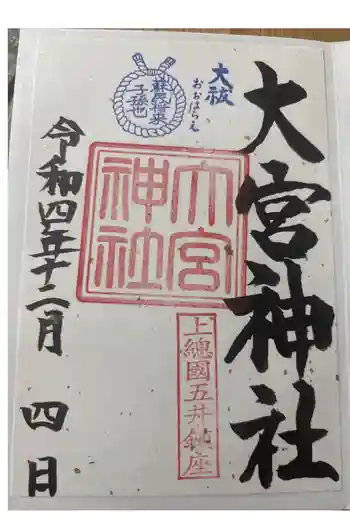 大宮神社
大祓
おおはらえ
蘇民将来
子孫也
大宮
神社
上總國五井鎮座
令和四年十二月 四日